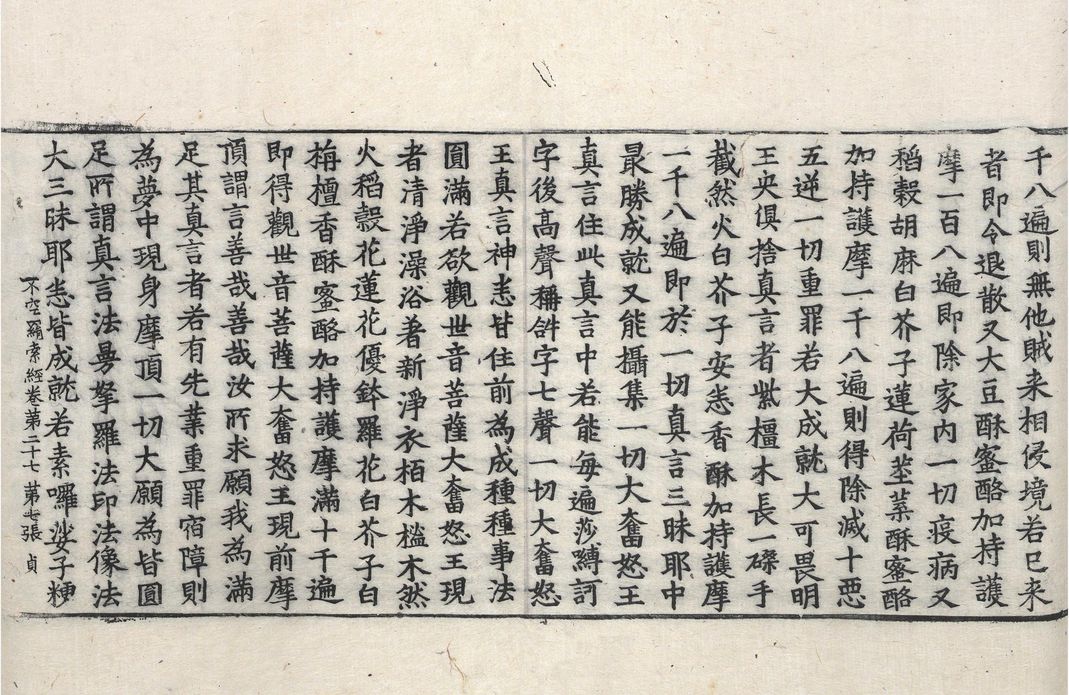 千八遍則無他賊来相侵境若已来
者即令退散又大豆酥蜜酪加持護
摩一百八遍即除家内一切疫病又
稻穀胡麻白芥子蓮荷莖葉酥蜜酪
加持護摩一千八遍則得除滅十惡
五逆一切重罪若大成就大可畏明
王央俱捨真言者紫檀木長一磔手
截然火白芥子安悉香酥加持護摩
一千八遍即於一切真言三昧耶中
最勝成就又能攝集一切大奮怒王
真言住此真言中若能每遍莎縛訶
字後高聲稱𤙖字七聲一切大奮怒
王真言神悉皆住前為成種種事法
圓滿若欲觀世音菩薩大奮怒王現
者清淨澡浴著新淨衣栢木榲木然
火稻穀花蓮花優鉢羅花白芥子白
栴檀香酥蜜酪加持護摩滿十千遍
即得觀世音菩薩大奮怒王現前摩
頂謂言善哉善哉汝所求願我為滿
足其真言者若有先業重罪宿障則
為夢中現身摩頂一切大願為皆圓
足所謂真言法曼拏羅法印法像法
大三昧耶悉皆成就若素囉娑子粳
不空羂索經卷第二十七 第七張 貞